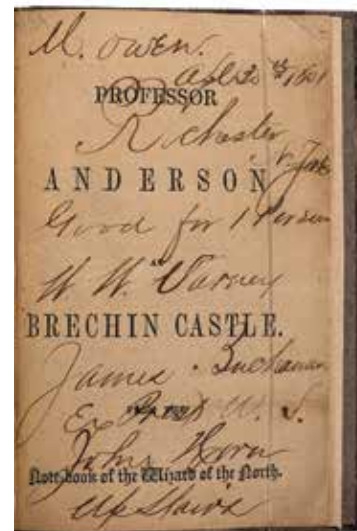 M. Owen.
20th 1861
PROFESSOR
Rochester
N. York
ANDERSON
Good for 1 Person
W. W. Varney
BRECHIN CASTLE.
James Buchanan
Ex Prest U. S.
John Horn
Note-book of the Wizard of the North.
Up Stairs